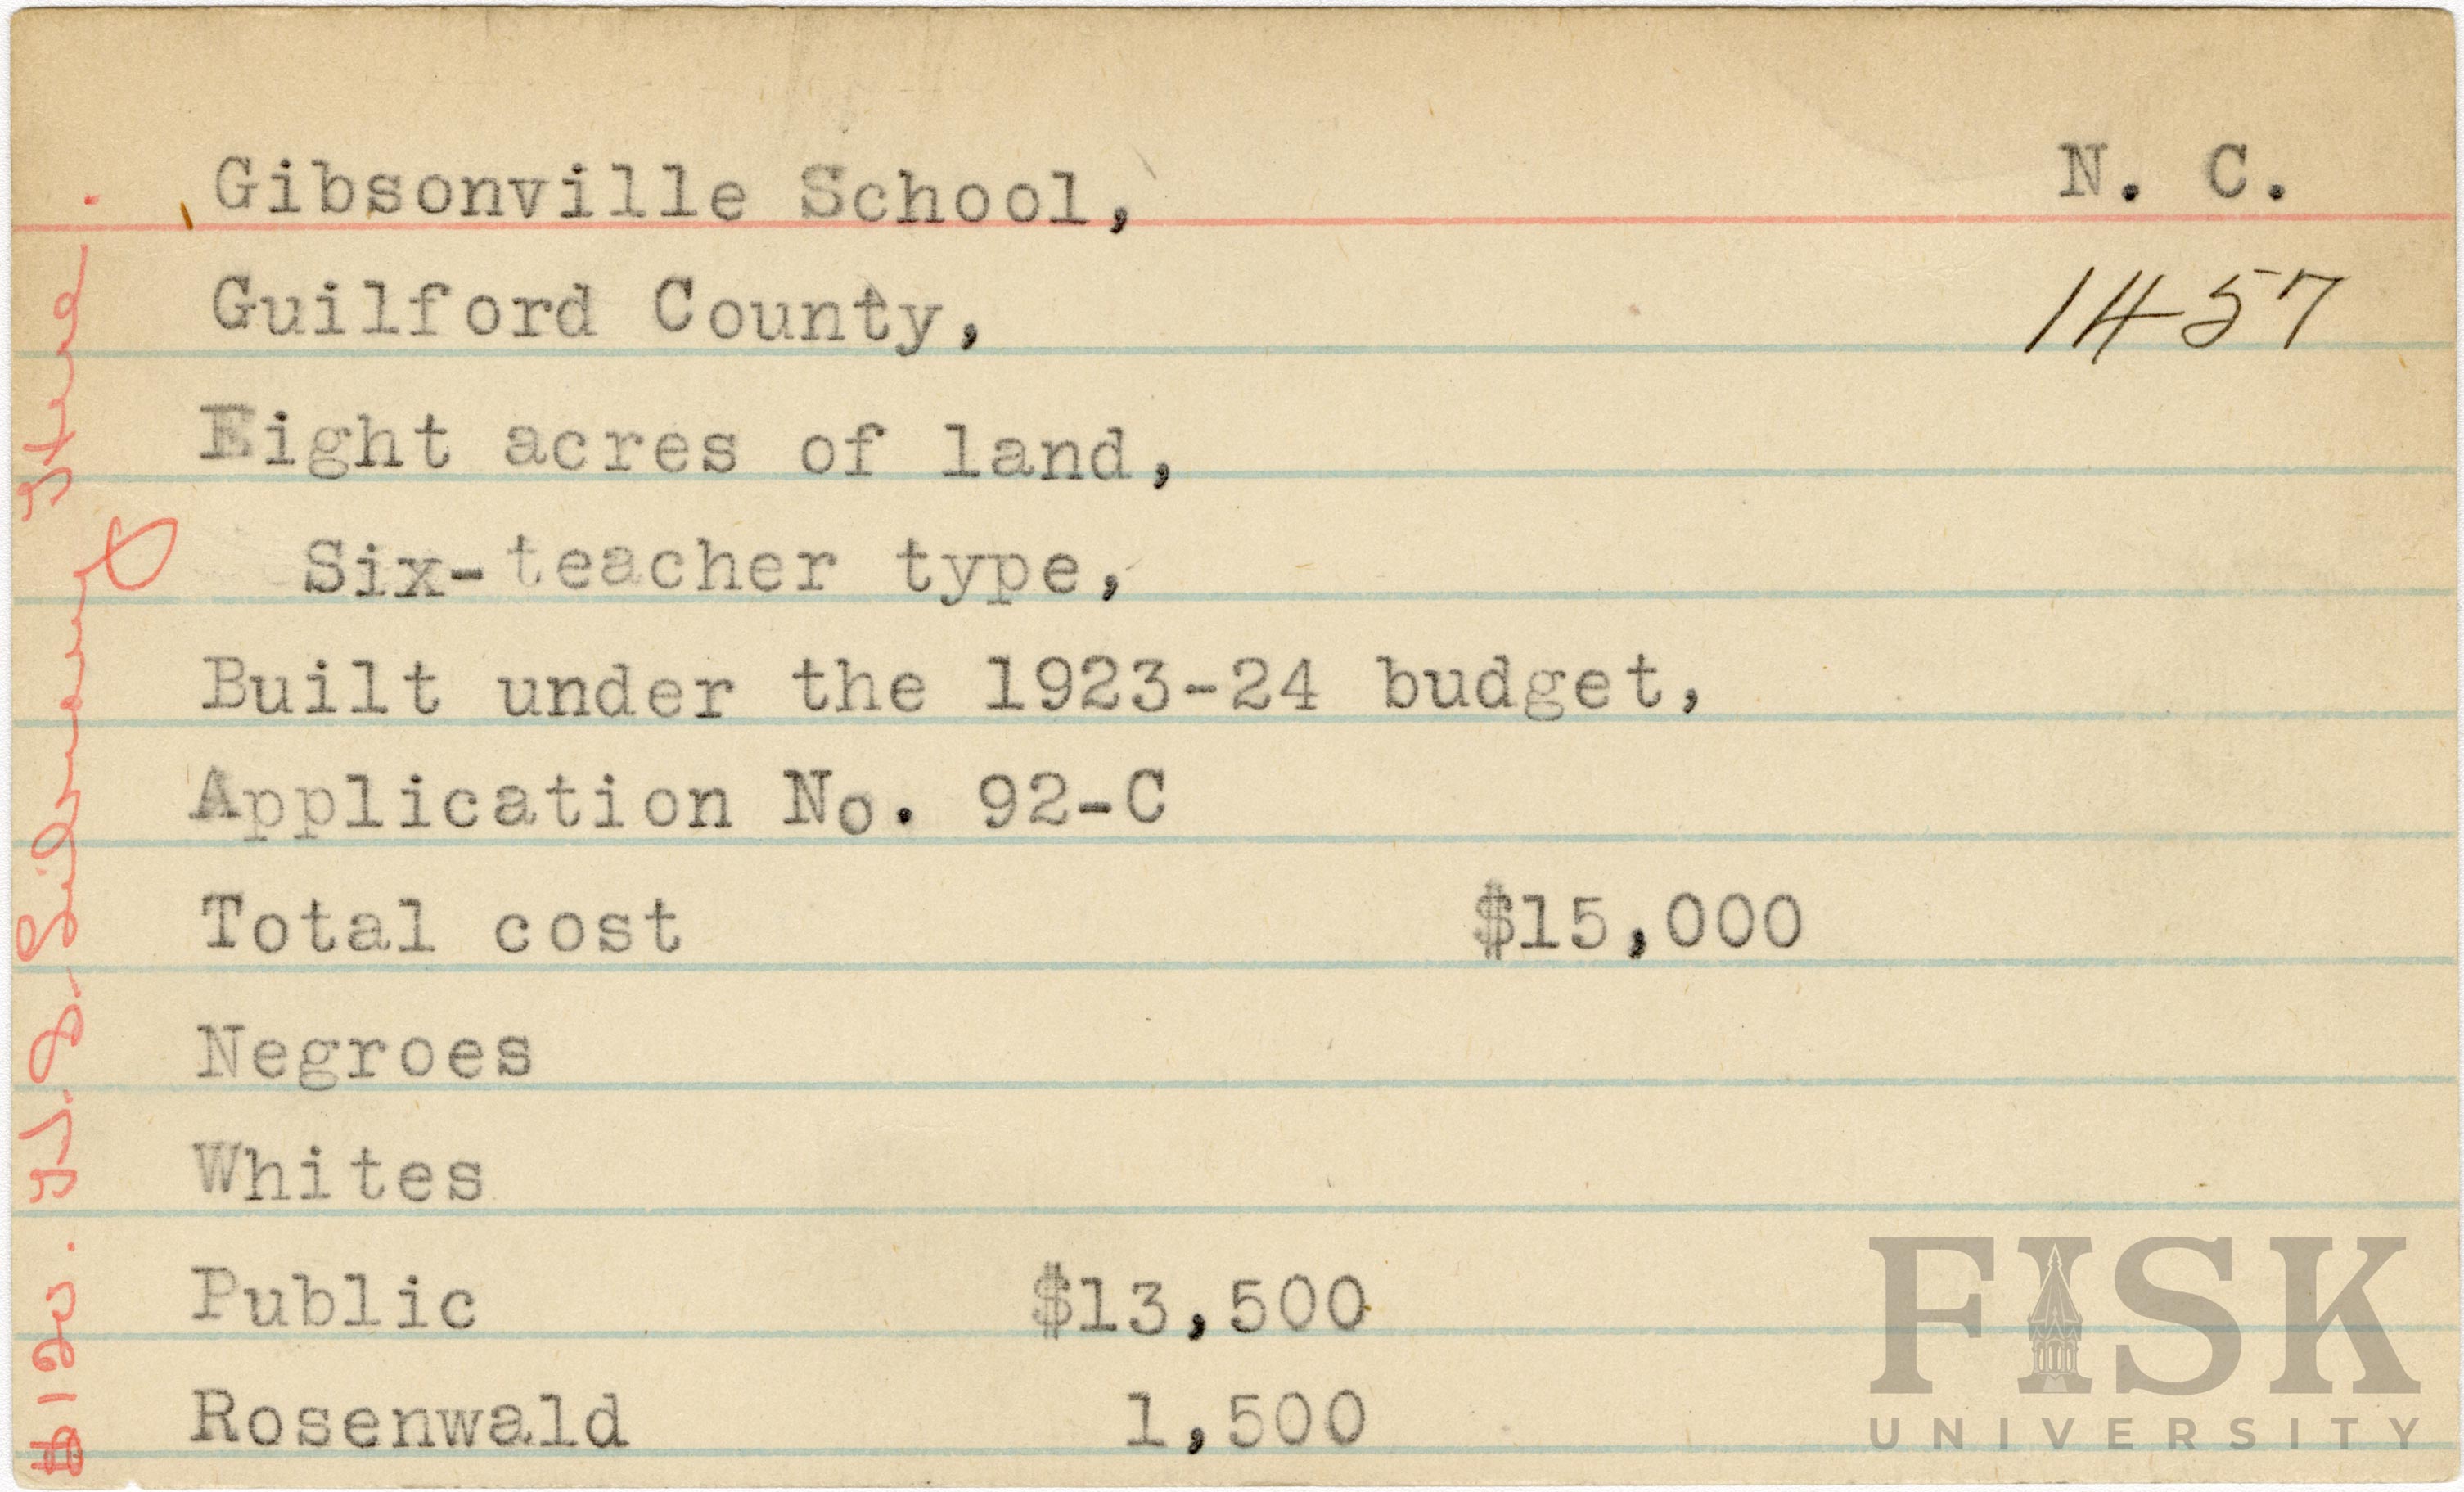 Gibsonville School, N. C.
Guilford County, 1457
Eight acres of land,
Six-teacher type,
Built under the 1923-24 budget,
Application No. 92-C
Total cost $15,000
Negroes
Whites
Public $13,500
Rosenwald 1,500
$120.
FISK
UNIVERSITY